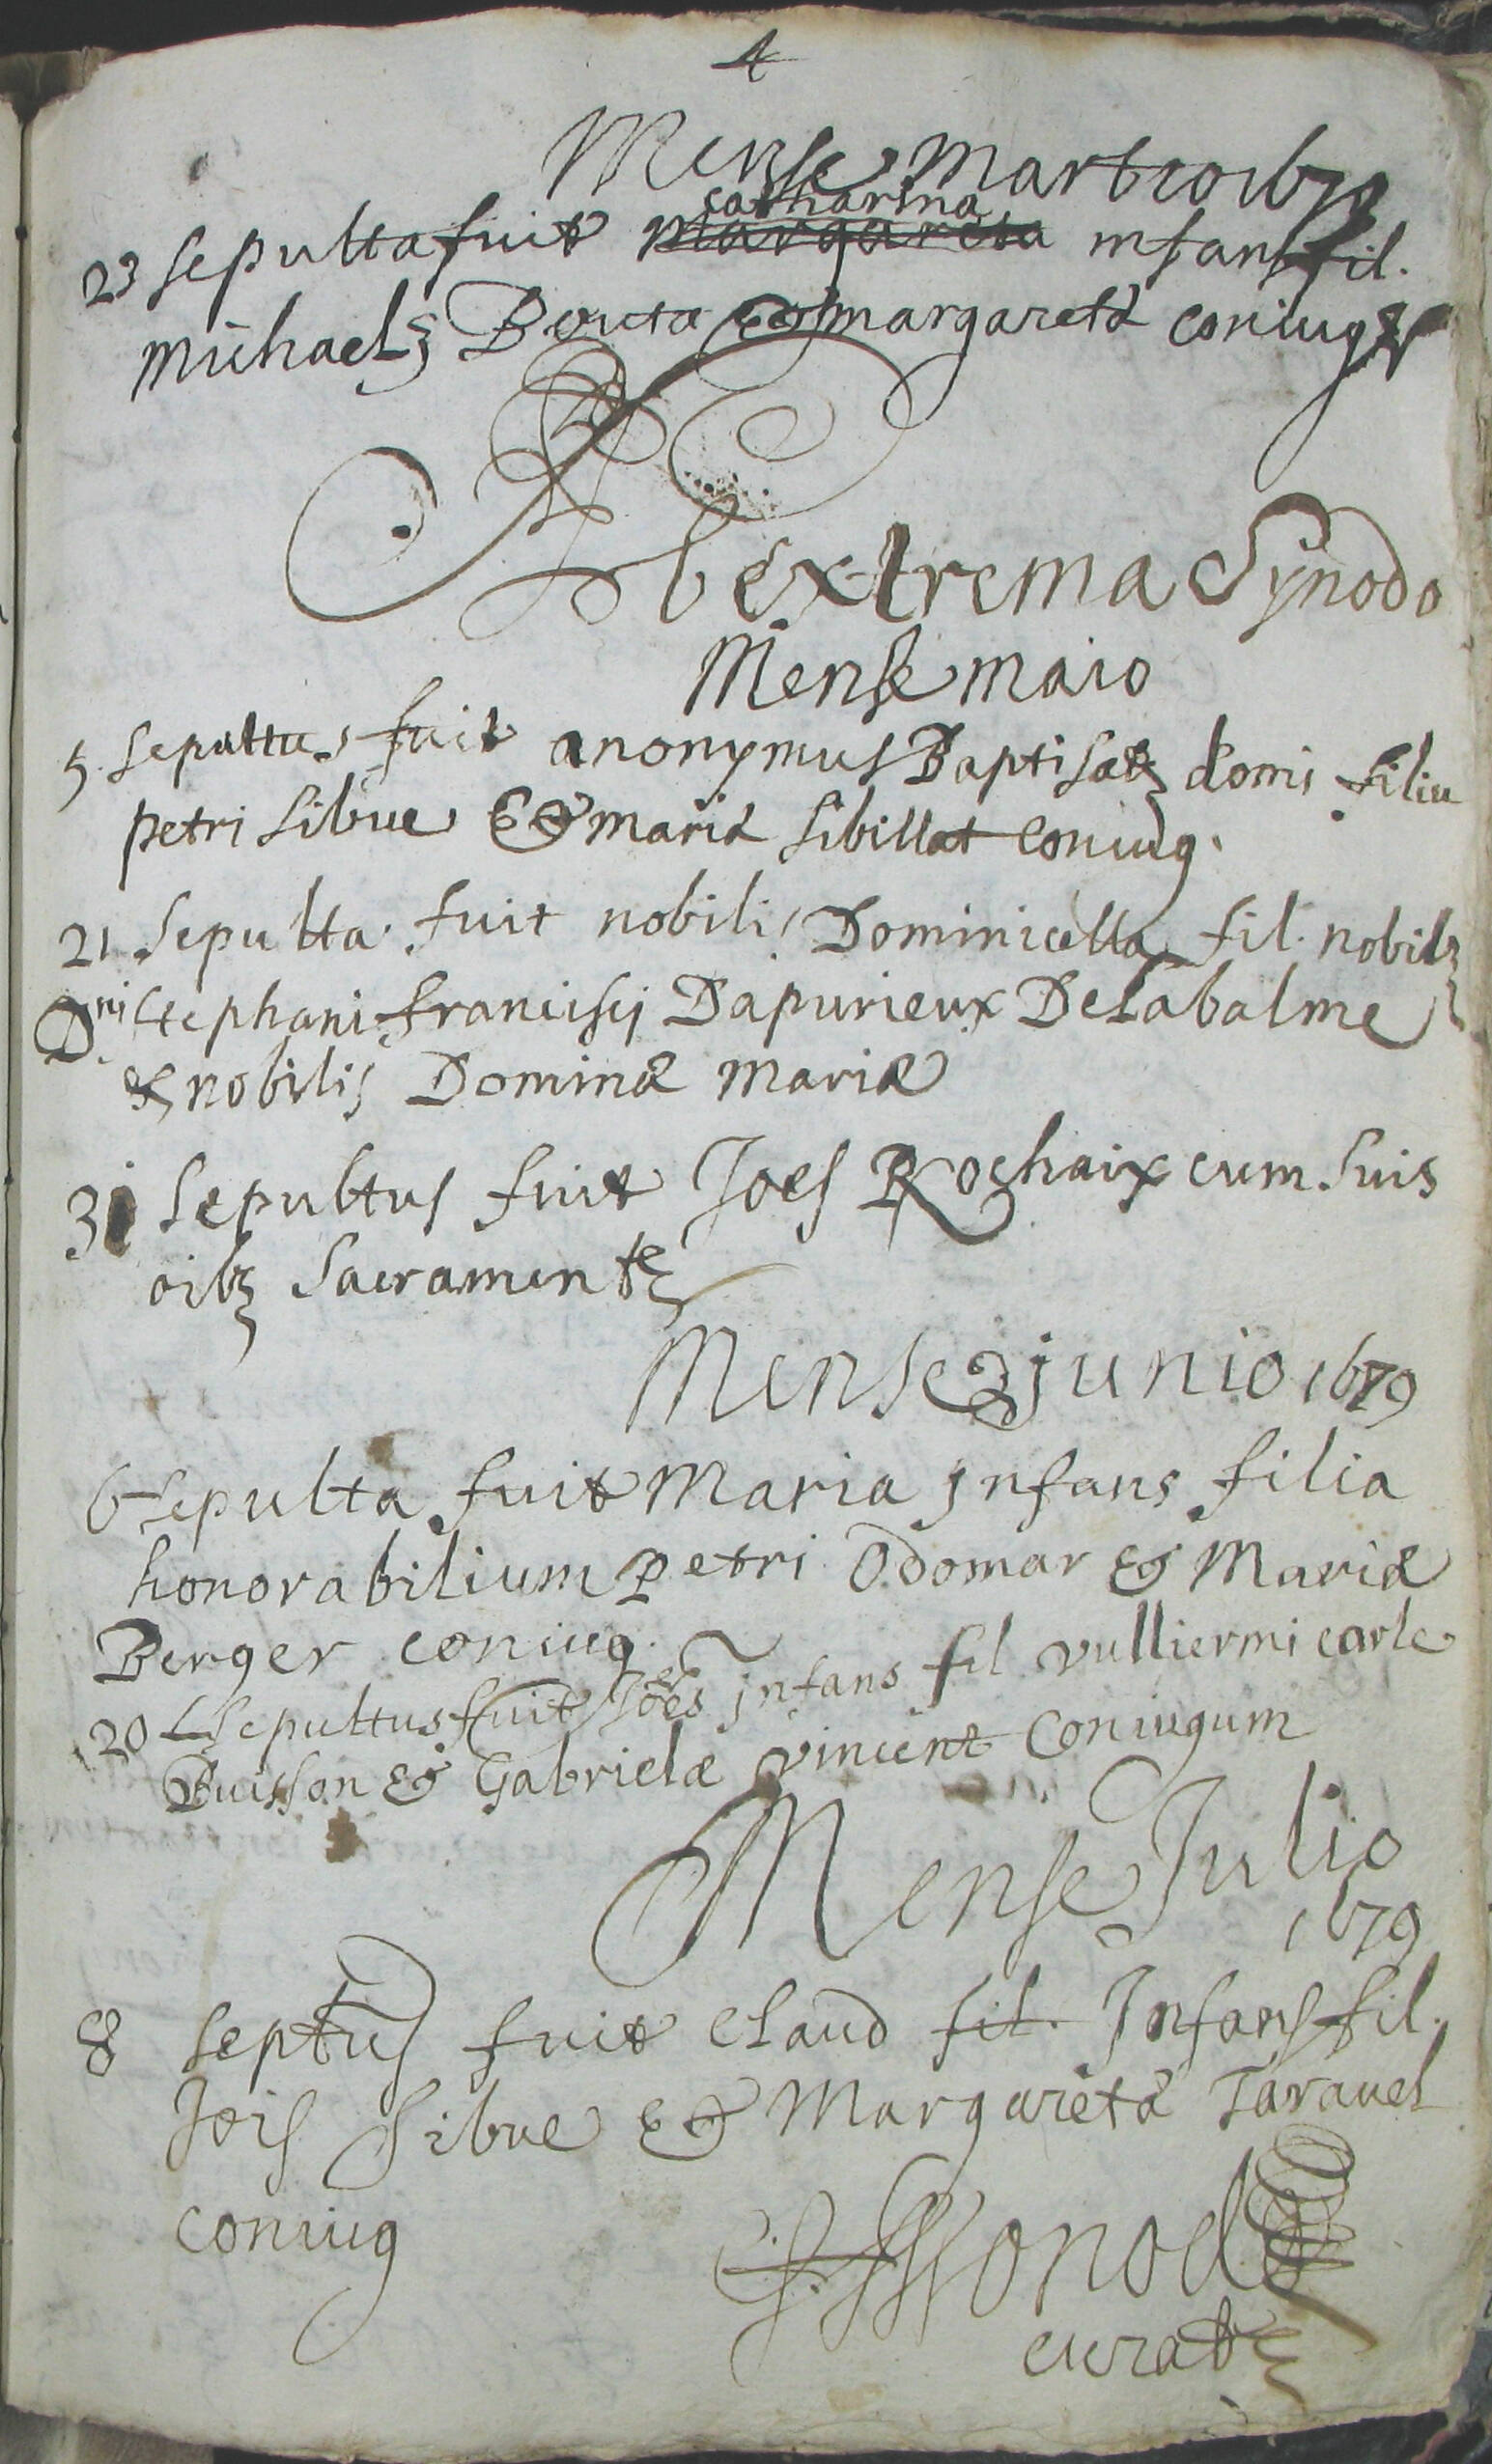 4
Mense Martio 1679
catharina
23 sepulta fuit Margareta infans fil.
Michaelis Bouta & margaretæ coniug
Ab extrema Synodo
Mense maio
5. sepultus fuit anonymus Baptisatus domi filiu
petri sibue & mariæ sibillat coniug.
21 Sepulta fuit nobilis Dominicella fil. nobilis
Dni stephani francisci Dapurieux Delabalme
& nobilis Dominæ mariæ
31 Sepultus fuit Joes Rochaix cum suis
oibus sacramentis
Mense junio 1679
6 sepulta fuit Maria jnfans filia
honorabilium Petri Odomar & Mariæ
Berger coniug.
20 sepultus fuit Joes jnfans fil vulliermi carle
Buisson & Gabrielæ vincent coniugum
Mense Julio
1679
8 septus fuit Claud fil. Infans fil.
Jois sibue & Margaretæ Taravel
coniug
curatus